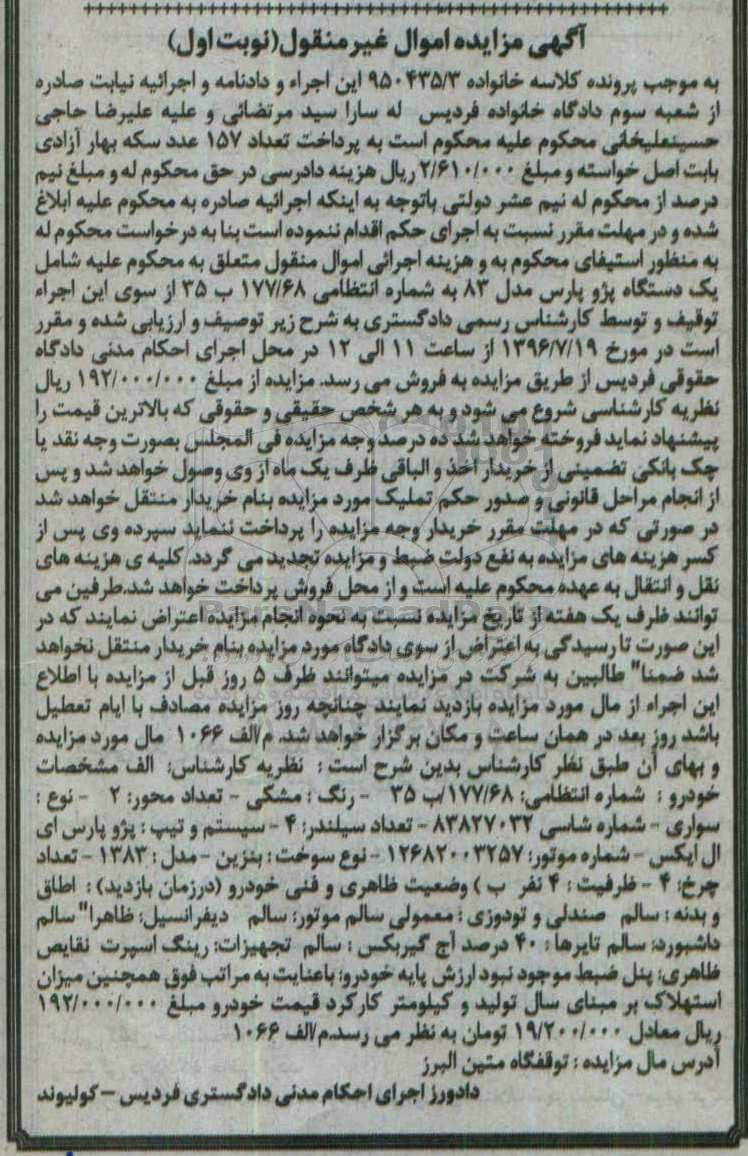 آگهی مزایده اموال غیرمنقول(نوبت اول)
به موجب پرونده کلاسه خانواده ۹۵۰۴۳۵/۳ این اجراء و دادنامه و اجرائیه نیابت صادره
از شعبه سوم دادگاه خانواده فردیس له سارا سید مرتضائی و علیه علیرضا حاجی
حسینعلیخانی محکوم علیه محکوم است به پرداخت تعداد ۱۵۷ عدد سکه بهار آزادی
بابت اصل خواسته و مبلغ ۲/۶۱۰/۰۰۰ ریال هزینه دادرسی در حق محکوم له و مبلغ نیم
درصد از محکوم له نیم عشر دولتی باتوجه به اینکه اجرائیه صادره به محکوم علیه ابلاغ
شده و در مهلت مقرر نسبت به اجرای حکم اقدام ننموده است بنا به درخواست محکوم له
به منظور استیفای محکوم به و هزینه اجرائی اموال منقول متعلق به محکوم علیه شامل
یک دستگاه پژو پارس مدل ۸۳ به شماره انتظامی ۱۷۷/۶۸ ب ۳۵ از سوی این اجراء
توقیف و توسط کارشناس رسمی دادگستری به شرح زیر توصیف و ارزیابی شده و مقرر
است در مورخ ۱۳۹۶/۷/۱۹ از ساعت ۱۱ الی ۱۲ در محل اجرای احکام مدنی دادگاه
حقوقی فردیس از طریق مزایده به فروش می رسد. مزایده از مبلغ ۱۹۲/۰۰۰/۰۰۰ ریال
نظریه کارشناسی شروع می شود و به هر شخص حقیقی و حقوقی که بالاترین قیمت را
پیشنهاد نماید فروخته خواهد شد ده درصد وجه مزایده فی المجلس بصورت وجه نقد یا
چک بانکی تضمینی از خریدار اخذ و الباقی ظرف یک ماه از وی وصول خواهد شد و پس
از انجام مراحل قانونی و صدور حکم تملیک مورد مزایده بنام خریدار منتقل خواهد شد
در صورتی که در مهلت مقرر خریدار وجه مزایده را پرداخت ننماید سپرده وی پس از
کسر هزینه های مزایده به نفع دولت ضبط و مزایده تجدید می گردد. کلیه ی هزینه های
نقل و انتقال به عهده محکوم علیه است و از محل فروش پرداخت خواهد شد.طرفین می
توانند ظرف یک هفته از تاریخ مزایده نسبت به نحوه انجام مزایده اعتراض نمایند که در
این صورت تا رسیدگی به اعتراض از سوی دادگاه مورد مزایده بنام خریدار منتقل نخواهد
شد ضمنا" طالبین به شرکت در مزایده میتوانند ظرف ۵ روز قبل از مزایده با اطلاع
این اجراء از مال مورد مزایده بازدید نمایند چنانچه روز مزایده مصادف با ایام تعطیل
باشد روز بعد در همان ساعت و مکان برگزار خواهد شد. م/الف ۱۰۶۶ مال مورد مزایده
و بهای آن طبق نظر کارشناس بدین شرح است : نظریه کارشناس: الف مشخصات
خودرو : شماره انتظامی: ۱۷۷/۶۸/ب ۳۵ - رنگ : مشکی - تعداد محور: ۲ - نوع :
سواری - شماره شاسی ۸۳۸۲۷۰۳۲ - تعداد سیلندر: ۴ - سیستم و تیپ : پژو پارس ای
ال ایکس - شماره موتور: ۱۲۶۸۲۰۰۳۲۵۷ - نوع سوخت : بنزین - مدل : ۱۳۸۳ - تعداد
چرخ: ۴ - ظرفیت : ۴ نفر ب ) وضعیت ظاهری و فنی خودرو (درزمان بازدید) : اطاق
و بدنه : سالم صندلی و تودوزی : معمولی سالم موتور: سالم دیفرانسیل: ظاهرا" سالم
داشبورد: سالم تایرها : ۴۰ درصد آج گیربکس : سالم تجهیزات: رینگ اسپرت نقایص
ظاهری: پنل ضبط موجود نبود ارزش پایه خودرو: باعنایت به مراتب فوق همچنین میزان
استهلاک بر مبنای سال تولید و کیلومتر کارکرد قیمت خودرو مبلغ ۱۹۲/۰۰۰/۰۰۰
ریال معادل ۱۹/۲۰۰/۰۰۰ تومان به نظر می رسد.م/الف ۱۰۶۶
آدرس مال مزایده : توقفگاه متین البرز
دادورز اجرای احکام مدنی دادگستری فردیس - کولیوند